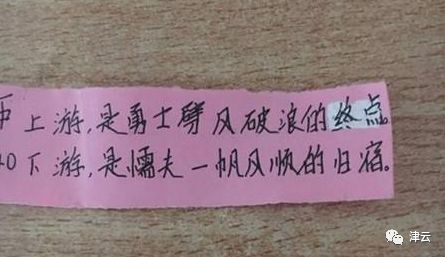 上游,是勇士劈风破浪的终点。
下游,是懦夫一帆风顺的归宿。
津云